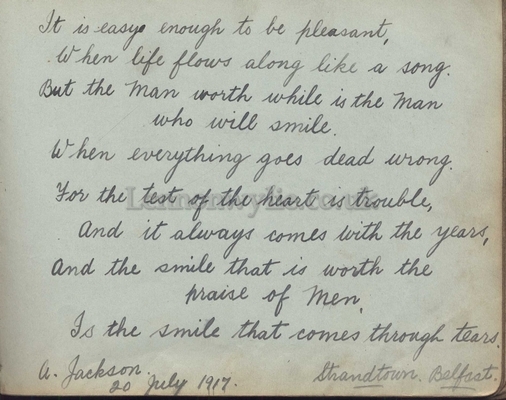 It is easy enough to be pleasant,
When life flows along like a song.
But the Man worth while is the Man
who will smile.
When everything goes dead wrong.
For the test of the heart is trouble,
And it always comes with the years,
And the smile that is worth the
praise of Men,
Is the smile that comes through tears.
A. Jackson. Strandtown. Belfast.
20 July 1917.